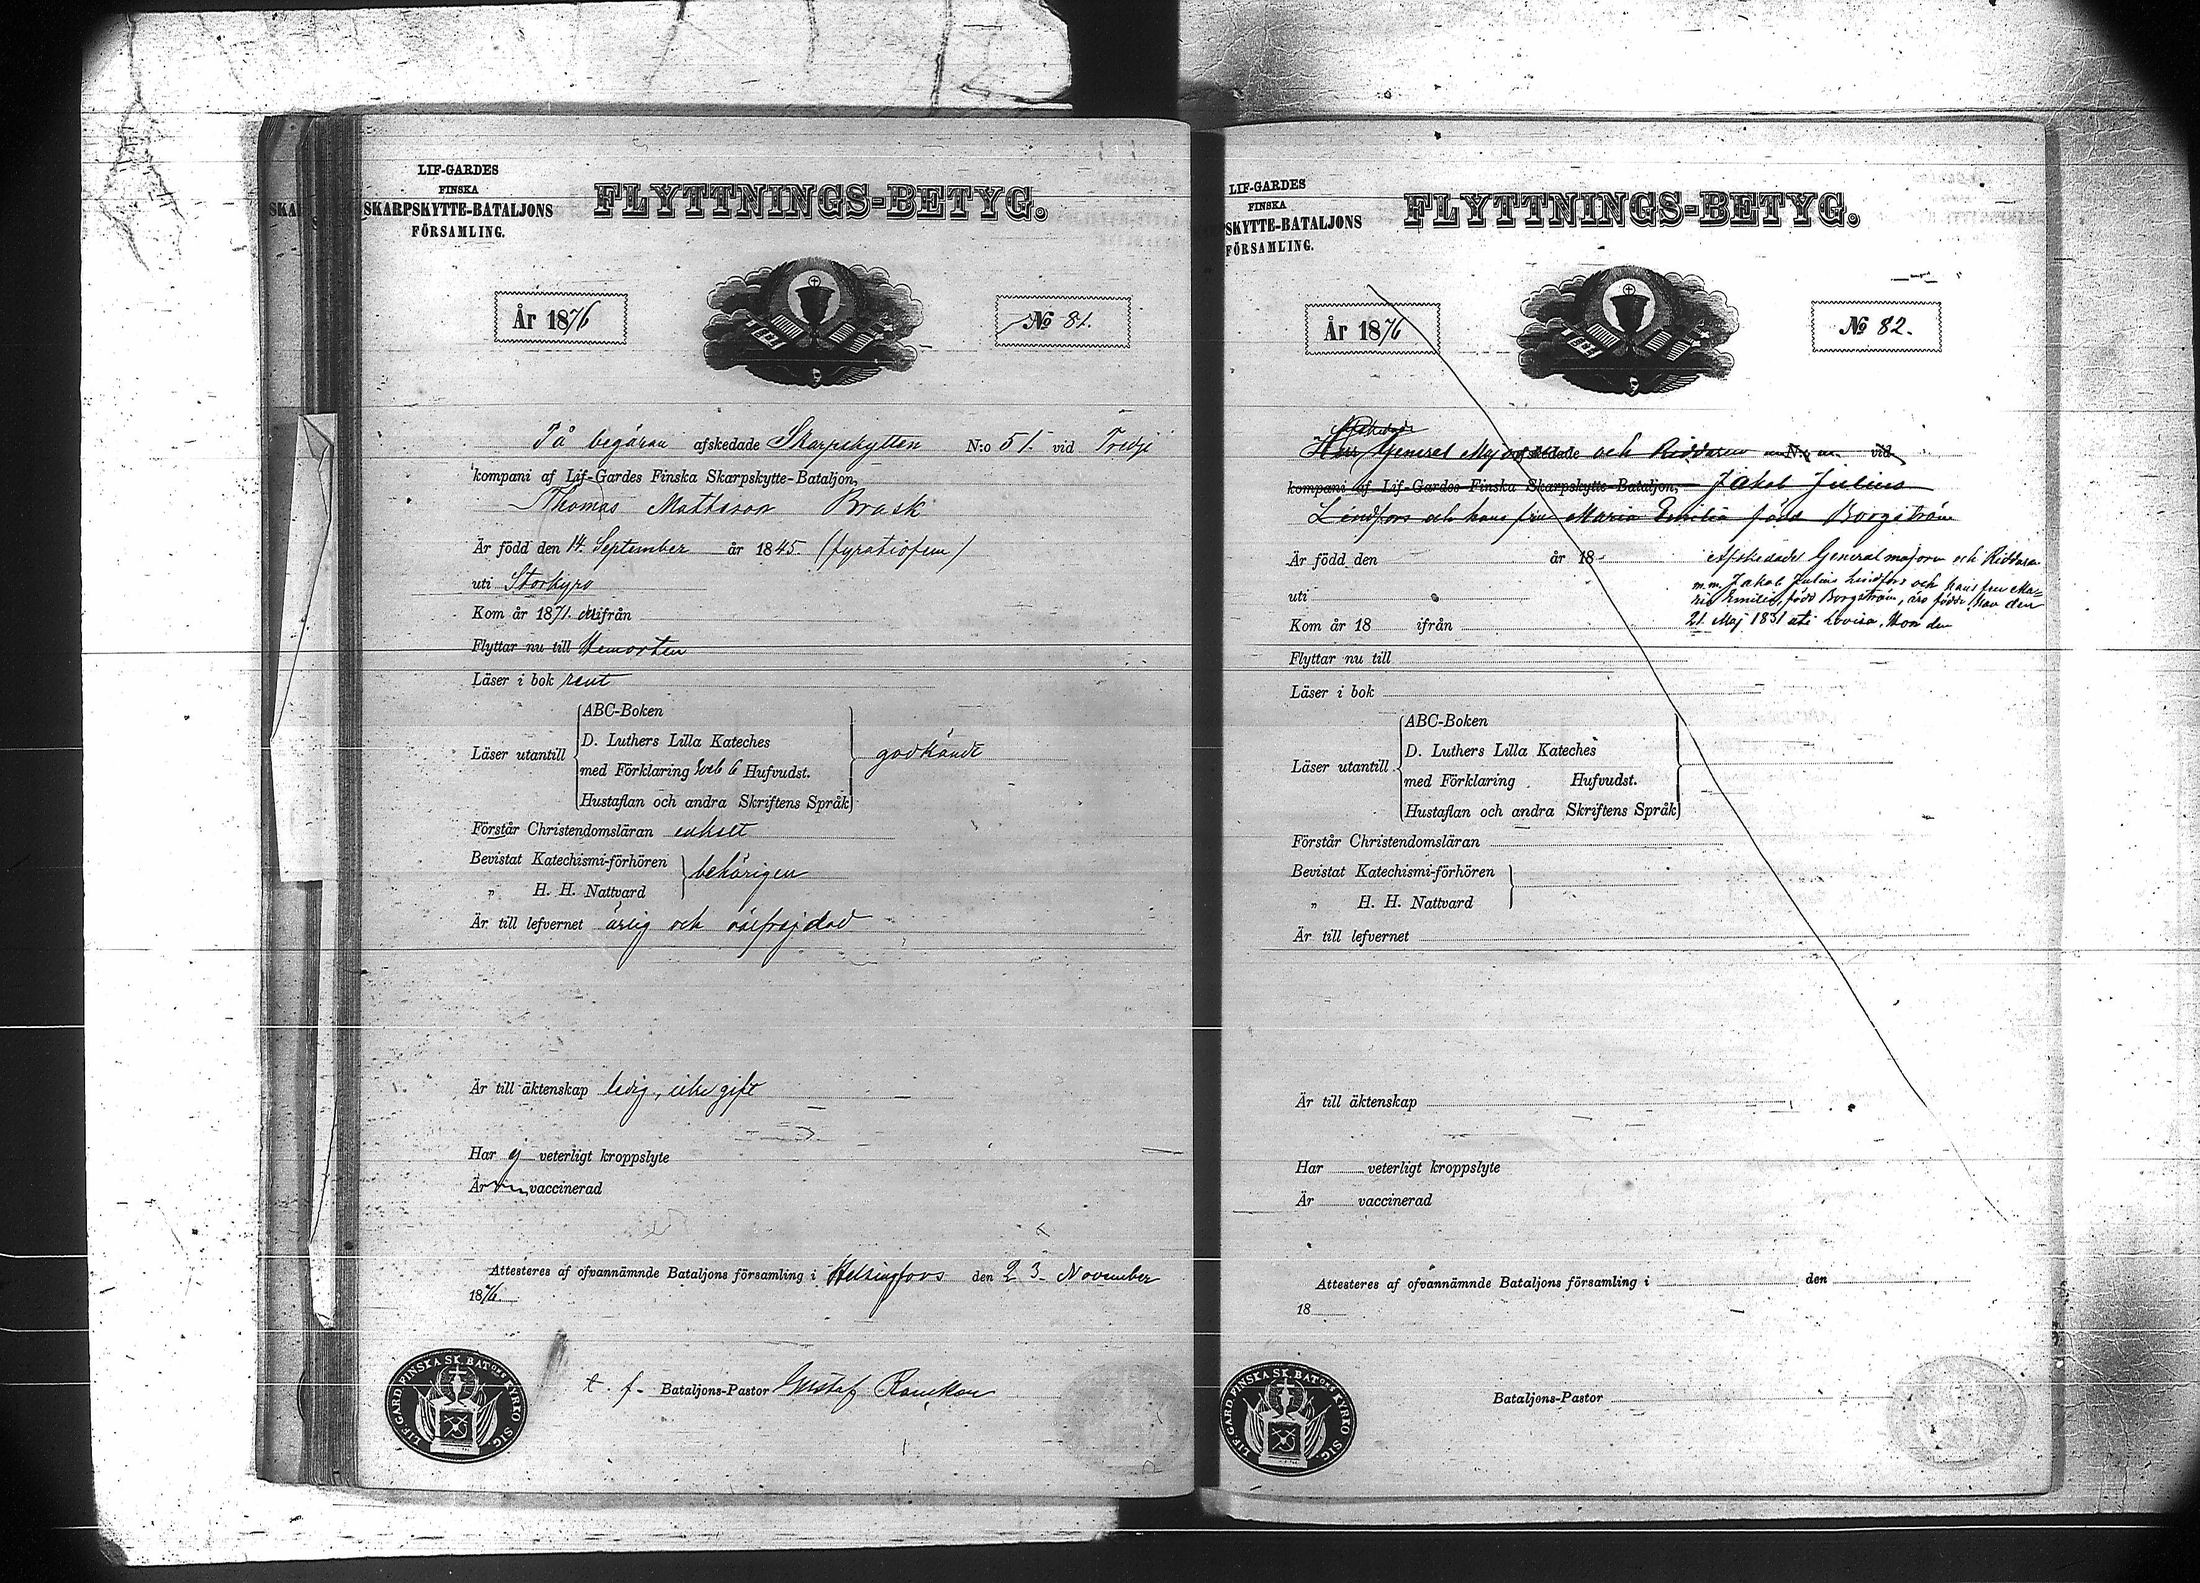 LIF-GARDES
FINSKA
SKARPSKYTTE-BATALJONS
FÖRSAMLING.
FLYTTNINGS-BETYG.
År 1876
No 81.
På begäran afskedade Skarpskytten N:o 51. vid Tredje
kompani af Lif-Gardes Finska Skarpskytte-Bataljon,
Thomas Mattsson Brask
Är född den 14. September år 1845. (fyratiofem)
uti Storkyro
Kom år 1871. ifrån
Flyttar nu till Hemorten
Läser i bok rent
ABC-Boken
D. Luthers Lilla Kateches
Läser utantill
med Förklaring och 6 Hufvudst.
godkändt
Hustaflan och andra Skriftens Språk
Förstår Christendomsläran enkelt
Bevistat Katechismi-förhören
behörigen
„ H. H. Nattvard
Är till lefvernet ärlig och välfrejdad
Är till äktenskap ledig, icke gift
Har ej veterligt kroppslyte
Är vaccinerad
Attesteres af ofvannämnde Bataljons församling i Helsingfors den 23. November
1876.
t. f. Bataljons-Pastor Gustaf
LIF. GARD FINSKA SK. BATONS KYRKO SIG.
LIF-GARDES
FINSKA
SKYTTE-BATALJONS
FÖRSAMLING.
FLYTTNINGS-BETYG.
År 1876
No 82.
Afskedade
Herr General Major afskedade och Riddaren N:o vid
kompani af Lif-Gardes Finska Skarpskytte-Bataljon, Jakob Julius
Lindfors och hans fru Maria Emilia född Borgström
Är född den år 18
uti
Kom år 18 ifrån
Afskedade Generalmajoren och Riddaren
m.m. Jakob Julius Lindfors och hans fru Ma=
ria Emilia, född Borgström, äro födde, Han den
21. Maj 1831 uti Lovisa, Hon den
Flyttar nu till
Läser i bok
ABC-Boken
D. Luthers Lilla Kateches
Läser utantill
med Förklaring Hufvudst.
Hustaflan och andra Skriftens Språk
Förstår Christendomsläran
Bevistat Katechismi-förhören
„ H. H. Nattvard
Är till lefvernet
Är till äktenskap
Har veterligt kroppslyte
Är vaccinerad
Attesteres af ofvannämnde Bataljons församling i den
18
Bataljons-Pastor
LIF. GARD FINSKA SK. BATONS KYRKO SIG.